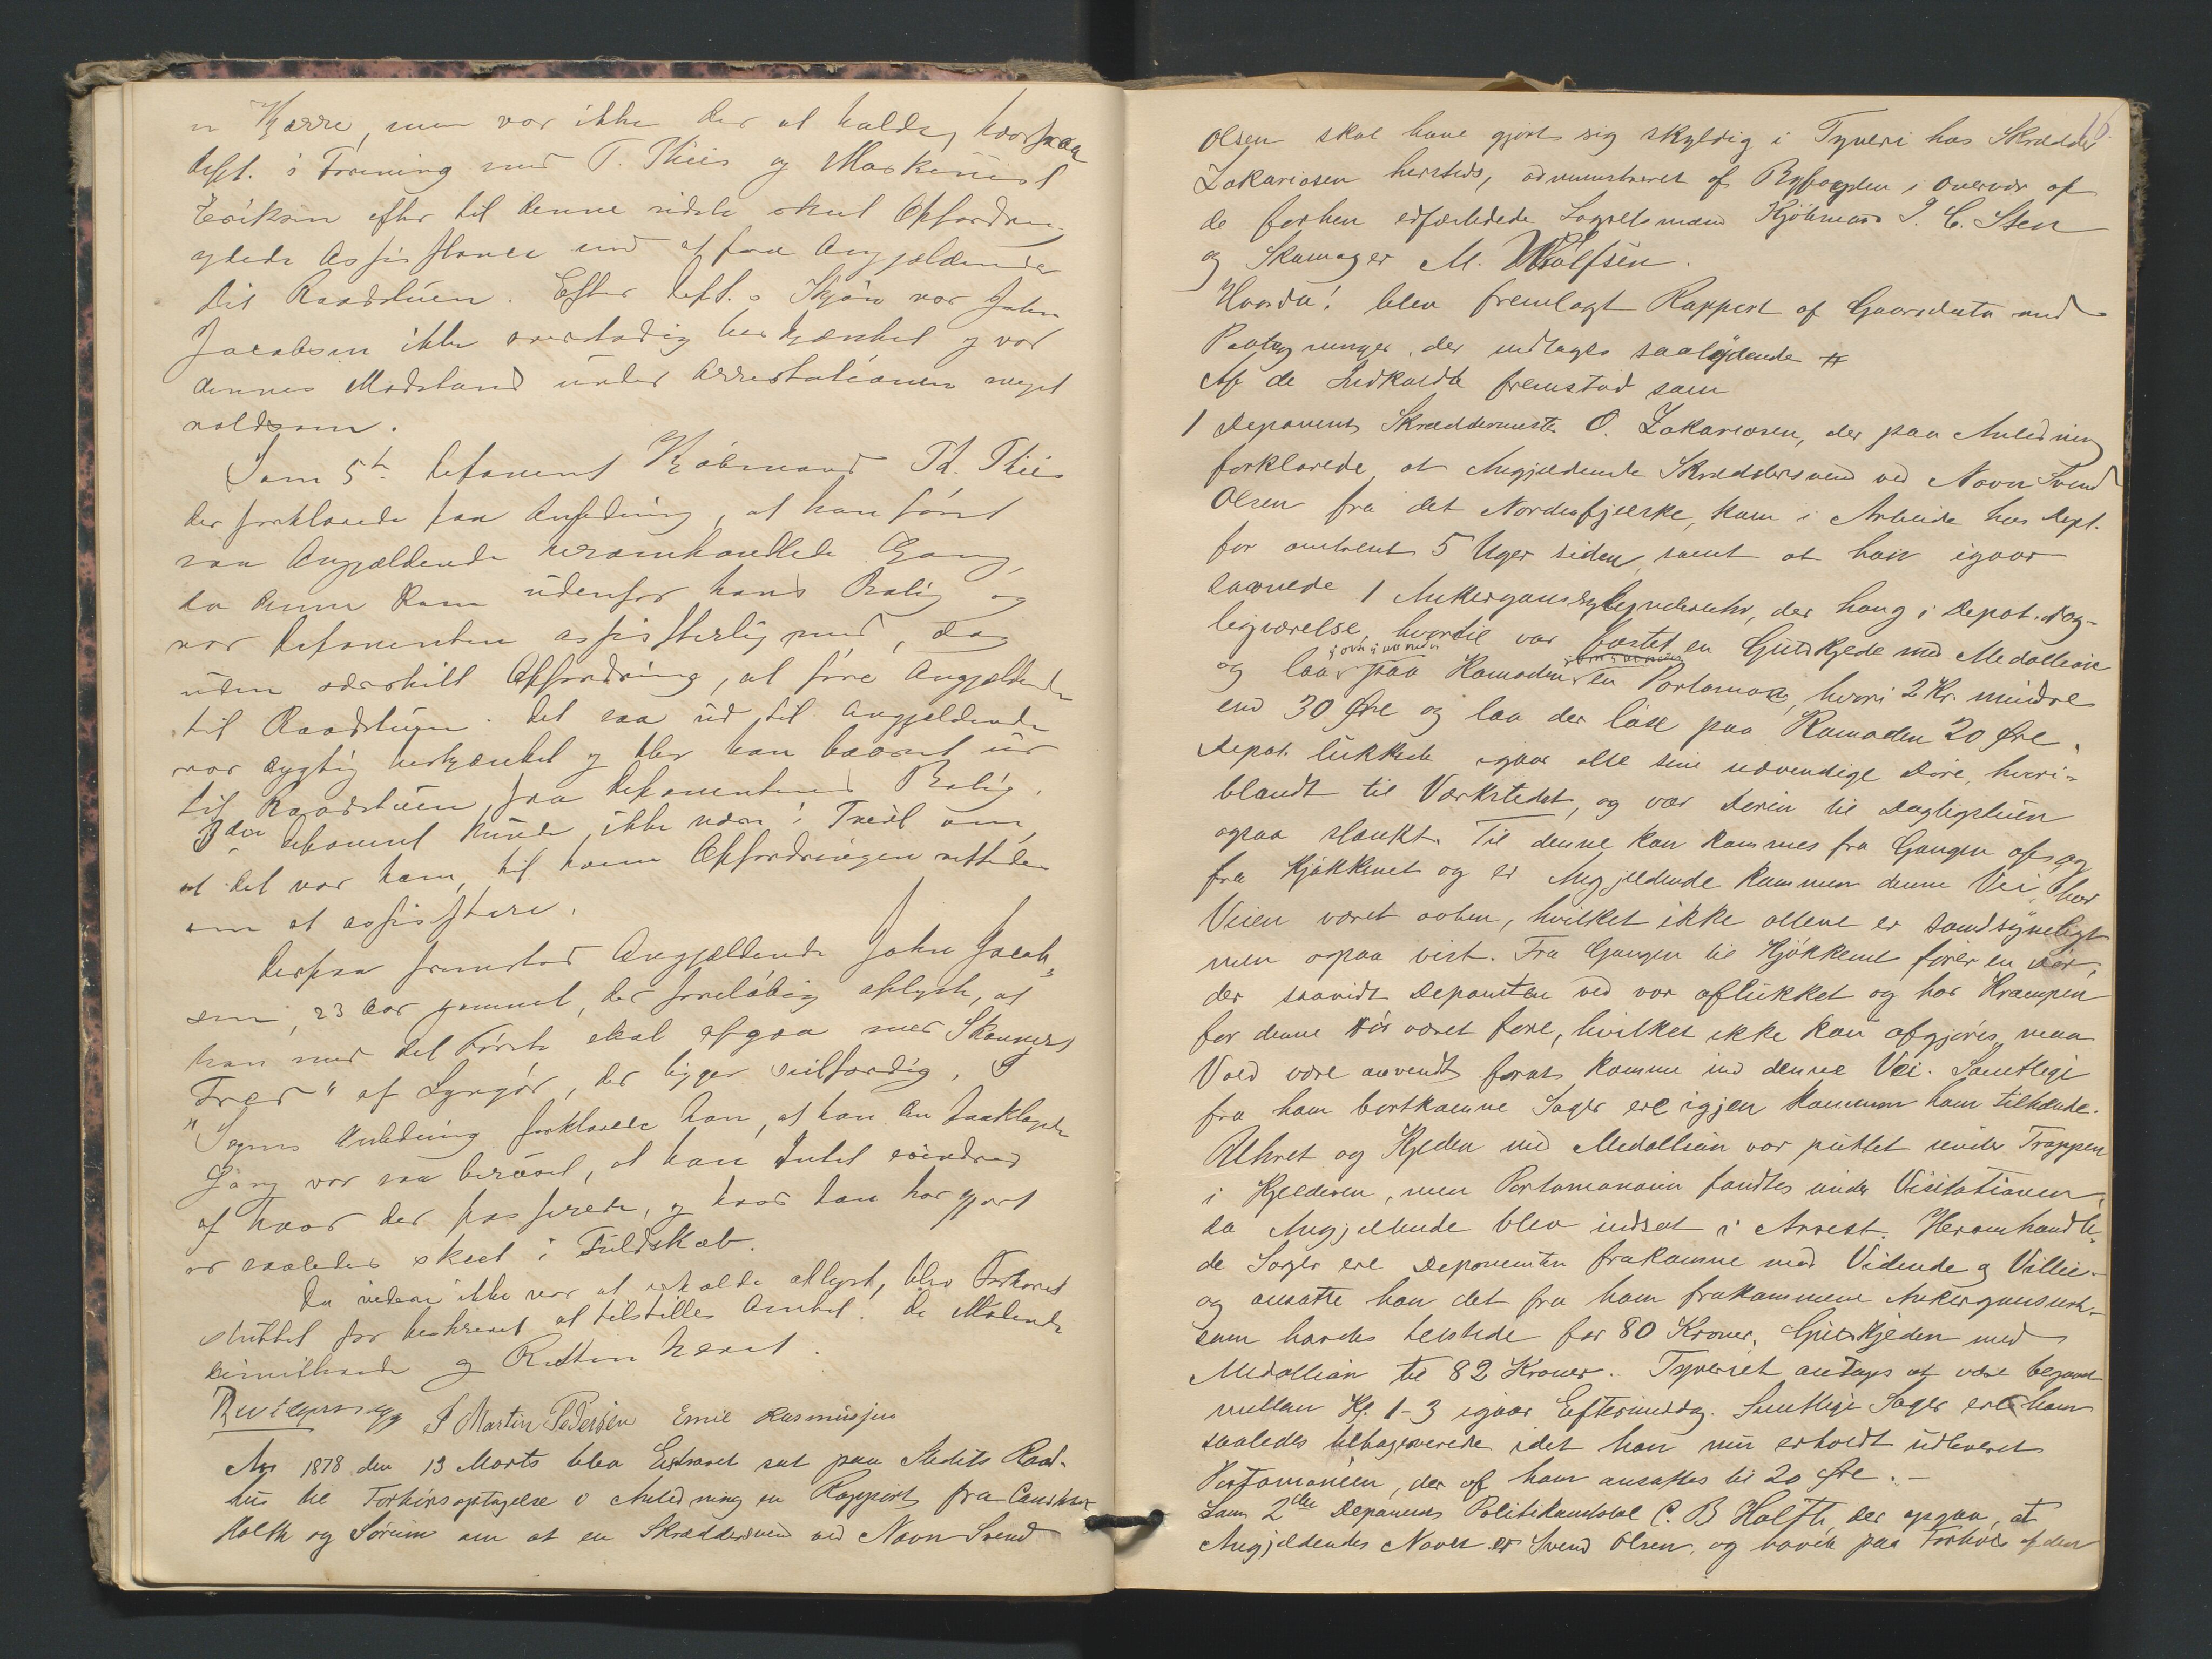 en Kjærre, men var ikke der at holde, hvorpaa
Dept. i Forening med T. Thiis og Maskinist
Eriksen efter til denne sidste skeet Opfordrin
ydede Assistance ved at faa Angjældende
til Raadstuen. Efter Dept.s Skjøn var John
Jacobsen ikke overstadig beskjænket og var
dennes Modstand under Arrestationen meget
voldsom.
Som 5te Deponent Kjøbmand Th. Thiis
der forklarede paa Anledning, at han først
saa Angjældende heromhandlede Gang,
da denne kom udenfor hans Bolig og
var Deponenten assisterlig med, dog
uden særskilt Opfordring, at føre Angjældende
til Raadstuen. Det saa ud til Angjældende
var dygtig beskjænket og blev han baaret
til Raadstuen fra Deponentens Bolig.
3die Deponent kunde ikke være i Tvivl om,
at det var ham, til hvem Opfordringen rettedes
om at assistere.
Derpaa fremstod Angjældende John Jacob-
sen, 23 Aar gammel, der foreløbig oplyste, at
han med det Første skal afgaa med Skonnert
"Fred" af Lyngør, der ligger seilfærdig. I
Sagens Anledning forklarede han, at han den paaklagede
Gang var saa beruset, at han Intet erindrer
af hvad der passerede, og hvad han har gjort
er saaledes skeet i Fuldskab.
Da videre ikke var at erholde oplyst, blev Forhøret
sluttet for beskrevet at tilstilles Amtet. De Mødende
dimitterede og Retten hævet.
S Martin Pedersen Emil Rasmussen
Aar 1878 den 13 Marts blev Extraret sat paa Stedets Raad-
hus til Forhørsoptagelse i Anledning en Rapport fra Constabel
Holth og Sørum om at en Skræddersvend ved Navn Svend
16
Olsen skal have gjort sig skyldig i Tyveri hos Skrædder
Zakariasen hersteds, administreret af Byfogden i Overvær af
de forhen edfæstede Lagrettemænd Kjøbmand P. C. Sten
og Skomager M. Wulfsen.
Hvorda! blev fremlagt Rapport af Gaarsdato med
Paategninger, der indtages saalydende #
Af de Indkaldte fremstod som
1 Deponent Skræddermester O. Zakariasen, der paa Anledning
forklarede, at Angjældende Skræddersvend ved Navn Svend
Olsen fra det Nordenfjelske, kom i Arbeide hos Dept.
for omtrent 5 Uger siden, samt at han igaar
savnede 1 Ankergangscylinderuhr, der hang i Depot. Dag-
ligværelse, hvortil var fæstet en Guldkjede med Medallion
og laa paa Komoden en Portemonnæ, hvori 2 Kr. mindre
end 30 Øre og laa der løse paa Komoden 20 Øre.
Depot. lukkede igaar alle sine udvendige Døre, hvori-
blandt til Værkstedet, og var Døren til Dagligstuen
ogsaa slaukt. Til denne kan kommes fra Gangen og
fra Kjøkkenet og er Angjældende kommen denne Vei, har
Veien været aaben, hvilket ikke allene er sandsynligt
men ogsaa vist. Fra Gangen til Kjøkkenet fører en Dør,
der saavidt Deponenten ved var aflukket og har Krampen
for denne Dør været fore, hvilket ikke kan afgjøres, maa
Vold være anvendt forat komme ind denne Vei. Samtlige
fra ham bortkomne Sager ere igjen kommen ham tilhænde.
Uhret og Kjeden med Medallion var puttet under Trappen
i Kjelderen, men Portemonæen fandtes under Visitationen,
da Angjældende blev indsat i Arrest. Heromhandle-
de Sager ere Deponenten frakomne mod Vidende og Villie
og ansatte han det fra ham frakommene Ankergangsuhr
som havde kostede for 80 Kroner, Guldkjeden med
Medallion til 82 Kroner. Tyveriet antages at være begaaet
mellem Kl. 1-3 igaar Eftermiddag. Samtlige Sager ere ham
saaledes tilbageleverede idet han nu erholdt udleveret
Portemonæen, der af ham ansattes til 20 Øre. -
Som 2den Deponent Politikonstabel C. B Holth der opgav, at
Angjældendes Navn er Svend Olsen. og vovik paa Forhør af den